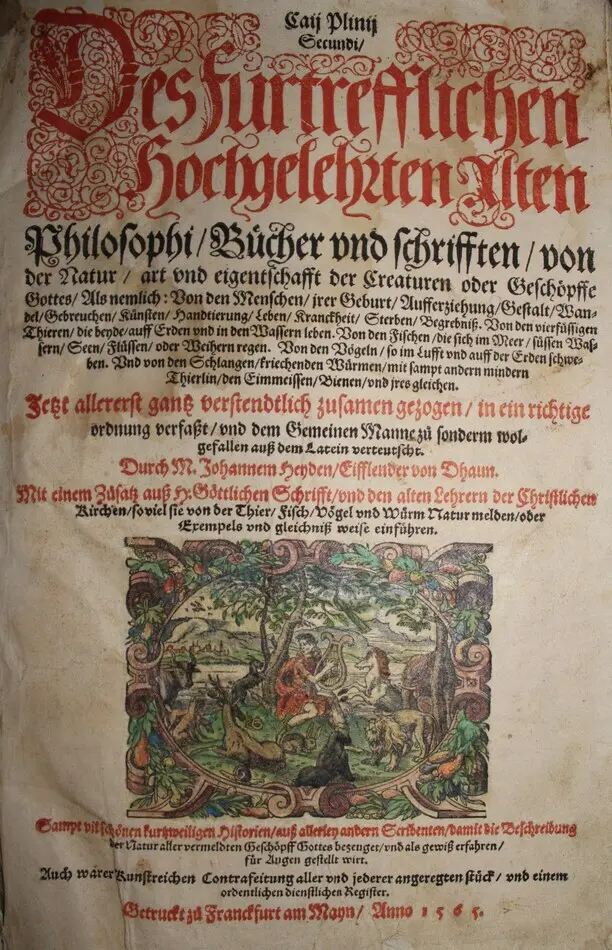 Caij Plinij
Secundi/
Des fürtrefflichen
Hochgelehrten Alten
Philosophi/Bücher vnd schrifften/von
der Natur/art vnd eigentschafft der Creaturen oder Geschöpffe
Gottes/Als nemlich: Von den Menschen/jrer Geburt/Aufferziehung/Gestalt/Wan-
del/Gebreuchen/Künsten/Handtierung/Leben/Kranckheit/Sterben/Begrebniß. Von den vierfüssigen
Thieren/die beyde/auff Erden vnd in den Wassern leben. Von den Fischen/die sich im Meer/süssen Was-
sern/Seen/Flüssen/oder Weihern regen. Von den Vögeln/so im Lufft vnd auff der Erden schwe-
ben. Vnd von den Schlangen/kriechenden Würmen/mit sampt andern mindern
Thierlin/den Eimmeissen/Bienen/vnd jres gleichen.
Jetzt allererst gantz verstendtlich zusamen gezogen/in ein richtige
ordnung verfaßt/vnd dem Gemeinen Manne zů sonderm wol-
gefallen auß dem Latein verteutscht.
Durch M. Johannem Heyden/Eifflender von Dhaun.
Mit einem Zůsatz auß H. Göttlichen Schrifft/vnd den alten Lehrern der Christlichen
Kirchen/so viel sie von der Thier/Fisch/Vögel vnd Würm Natur melden/oder
Exempels vnd gleichniß weise einführen.
Sampt vil schönen kurtzweiligen Historien/auß allerley andern Scribenten/damit die Beschreibung
der Natur aller vermeldten Geschöpff Gottes bezeuget/vnd als gewiß erfahren/
für Augen gestellt wirt.
Auch warer Kunstreichen Contrafeitung aller vnd jederer angeregten stück/vnd einem
ordentlichen dienstlichen Register.
Getruckt zů Franckfurt am Mayn/Anno 1565.